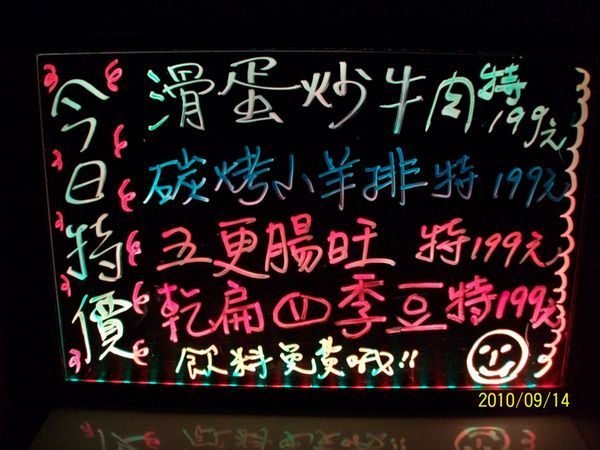 今日特價
滑蛋炒牛肉特199元
碳烤小羊排特199元
五更腸旺 特199元
乾扁四季豆特199元
飲料免費哦!!
2010/09/14